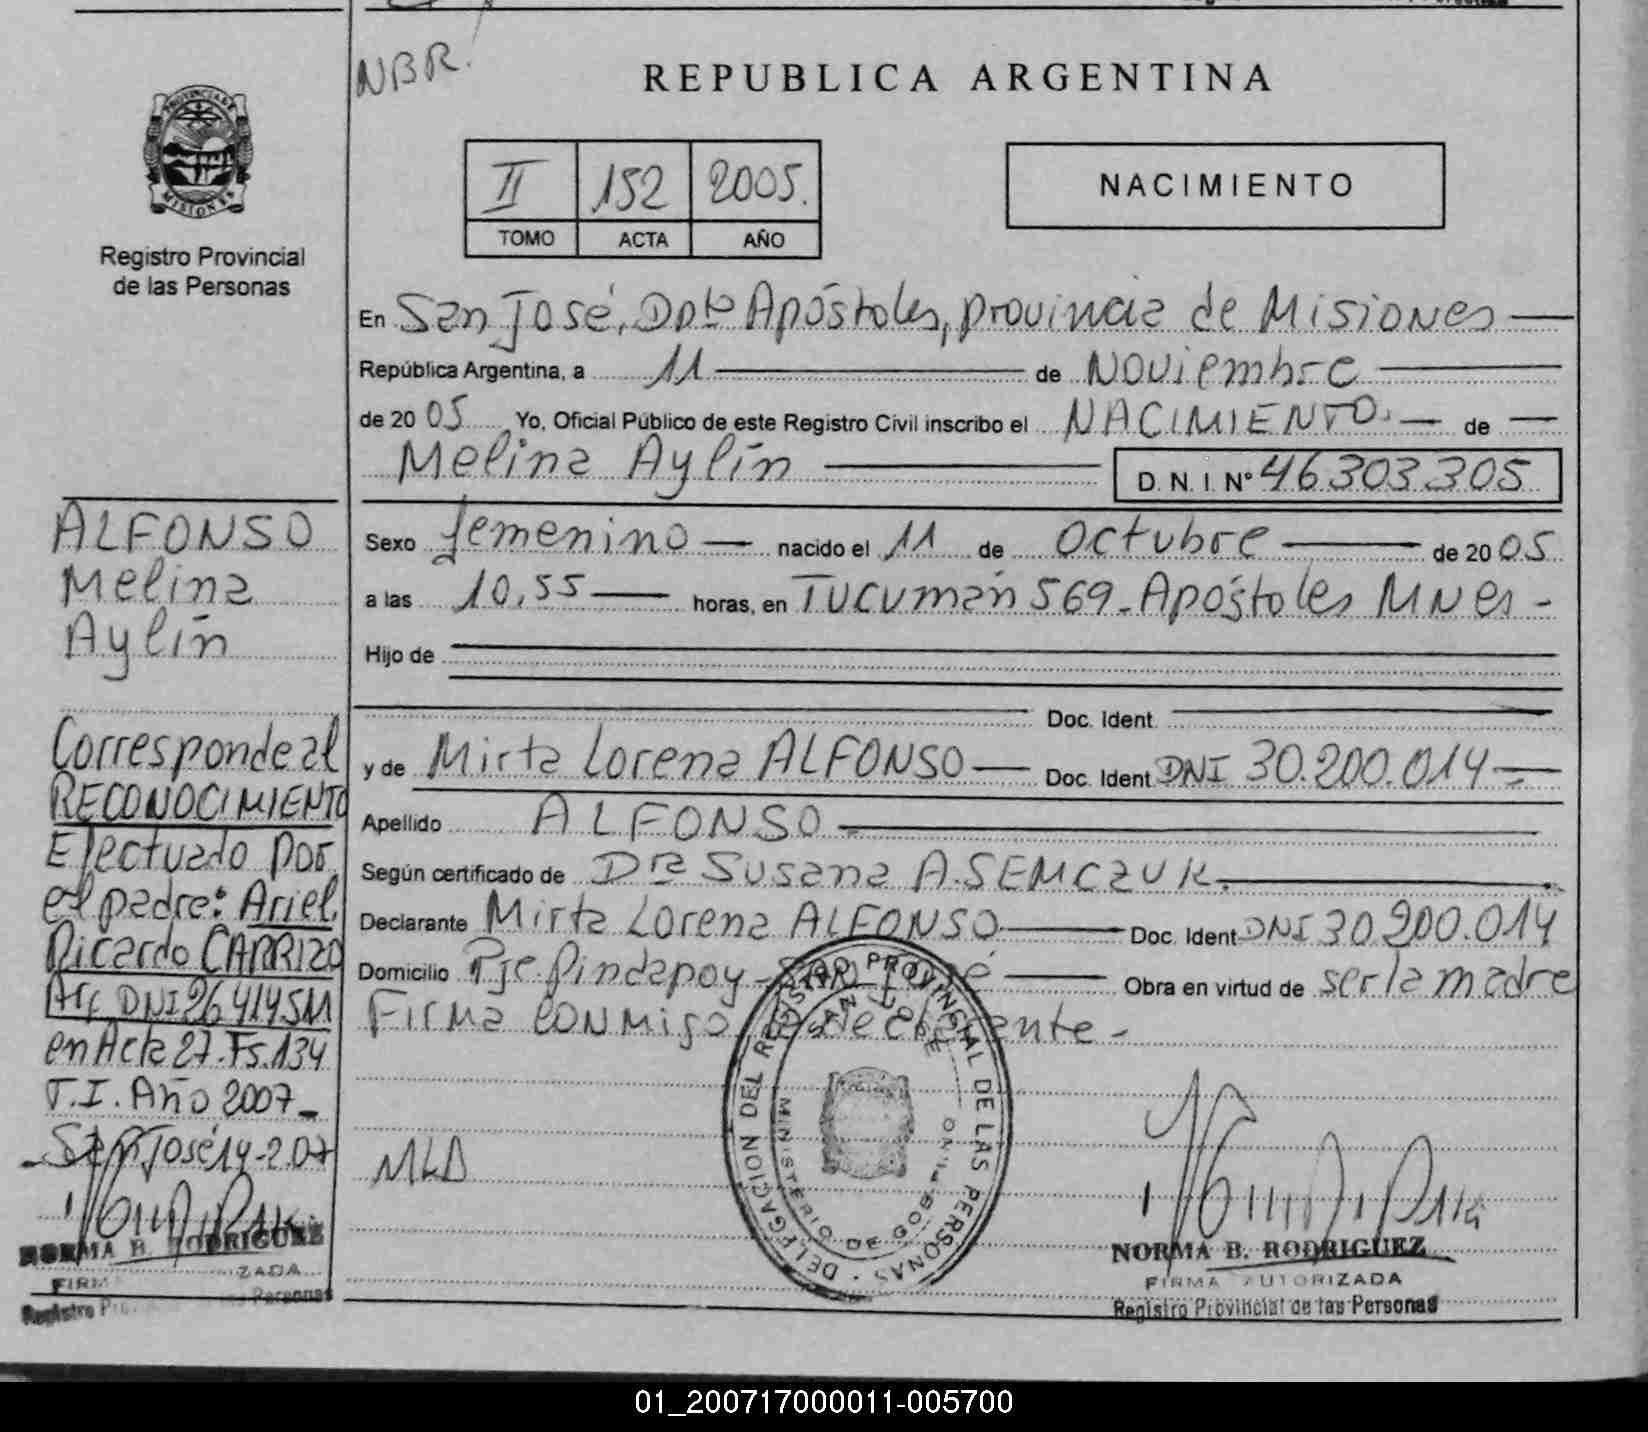 NBR.
REPUBLICA ARGENTINA
PROVINCIA DE
MISIONES
II 152 2005.
TOMO ACTA AÑO
NACIMIENTO
Registro Provincial
de las Personas
En San José, Dpto Apóstoles, provincia de Misiones
República Argentina, a 11 de Noviembre
de 2005 Yo, Oficial Público de este Registro Civil inscribo el NACIMIENTO. de
Melina Aylín D.N.I. Nº 46303305
ALFONSO
Melina
Aylín
Sexo femenino nacido el 11 de Octubre de 2005
a las 10,55 horas, en Tucumán 569 - Apóstoles Mnes -
Hijo de
Doc. Ident.
y de Mirta Lorena ALFONSO Doc. Ident. DNI 30.200.014
Apellido ALFONSO
Según certificado de Dra Susana A. SEMCZUK.
Declarante Mirta Lorena ALFONSO Doc. Ident. DNI 30.200.014
Domicilio Pje. Pindapoy - San José Obra en virtud de ser la madre
Firma conmigo la declarante -
Corresponde al
RECONOCIMIENTO
Efectuado por
el padre: Ariel
Ricardo CARRIZO
Arg. DNI 26414511
en Acta 27. Fs. 134
T.I. Año 2007 -
San José 14-2-07
NORMA B. RODRIGUEZ
DELEGACION DEL REGISTRO PROVINCIAL DE LAS PERSONAS
SAN JOSE
MINISTERIO DE GOBIERNO
NORMA B. RODRIGUEZ
FIRMA AUTORIZADA
Registro Provincial de las Personas
01_200717000011-005700